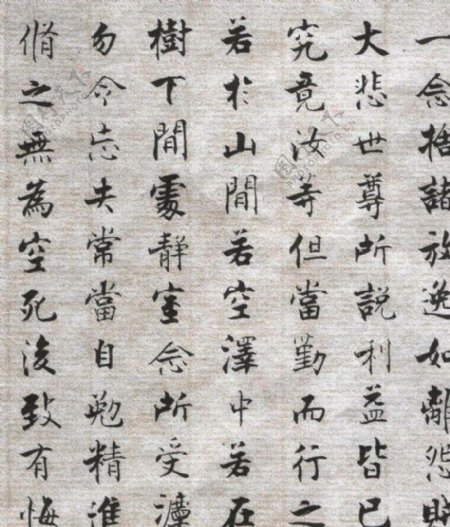 一念捨諸放逸如離怨賊
大悲世尊所説利益皆已
究竟汝等但當勤而行之
若於山間若空澤中若在
樹下閒處靜室念所受灋
勿令忘失常當自勉精進
脩之無為空死後致有悔